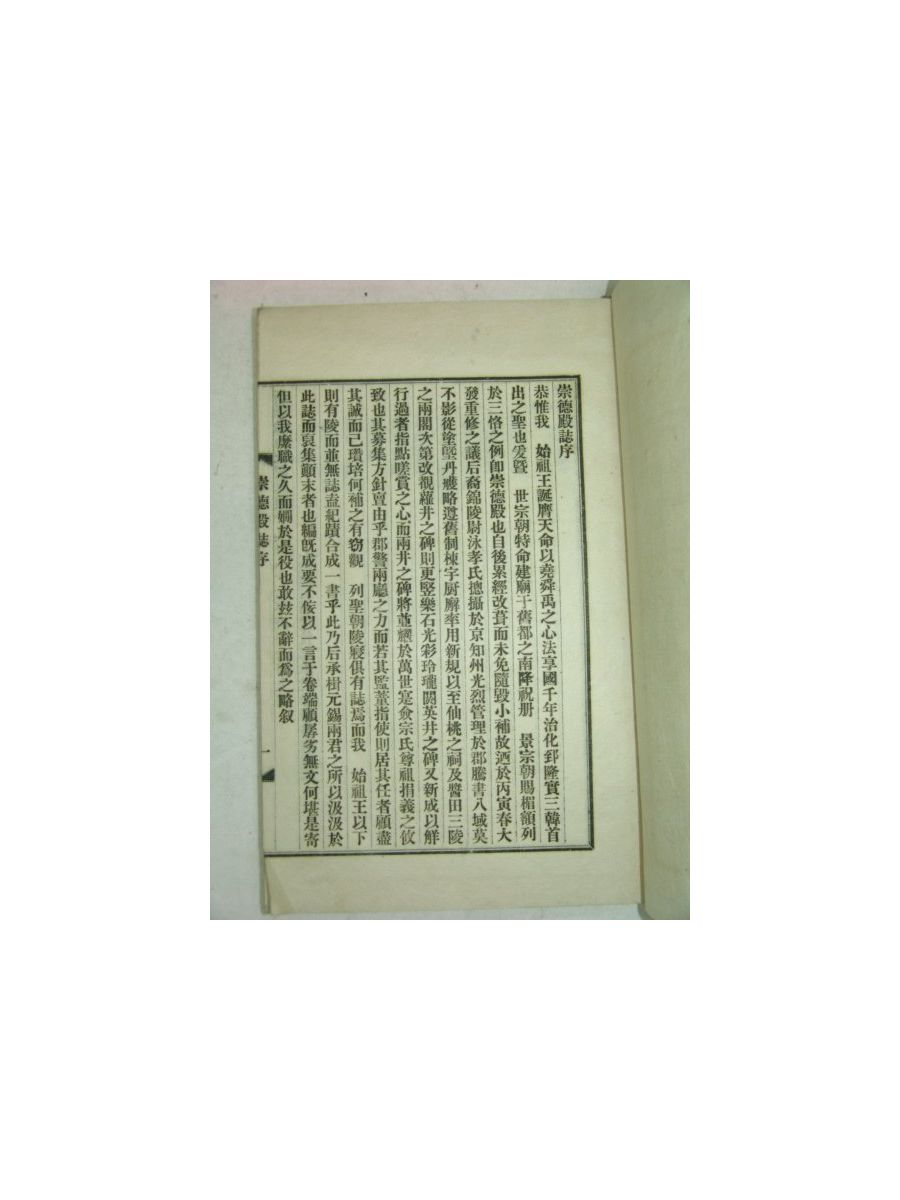 崇德殿誌序
恭惟我 始祖王誕膺天命以堯舜禹之心法享國千年治化郅隆實三韓首
出之聖也爰曁 世宗朝特命建廟于舊都之南降祝册 景宗朝賜楣額列
於三恪之例卽崇德殿也自後累經改葺而未免隨毀小補故迺於丙寅春大
發重修之議后裔錦陵尉泳孝氏摠攝於京知州光烈管理於郡騰書八域莫
不影從塗墍丹雘略遵舊制棟宇厨廨率用新規以至仙桃之祠及醬田三陵
之兩閣次第改觀蘿井之碑則更竪樂石光彩玲瓏閼英井之碑又新成以鮮
行過者指點嗟賞之心而兩井之碑將並耀於萬世寔僉宗氏尊祖捐義之攸
致也其募集方針亶由乎郡警兩廳之力而若其監董指使則居其任者顧盡
其誠而已瓚培何補之有窃觀 列聖朝陵寢俱有誌焉而我 始祖王以下
則有陵而並無誌盍紀蹟合成一書乎此乃后承楫元錫兩君之所以汲汲於
此誌而裒集顚末者也編旣成要不侫以一言于卷端顧孱劣無文何堪是寄
但以我縻職之久而嫺於是役也敢玆不辭而爲之略叙
崇德殿誌序
一